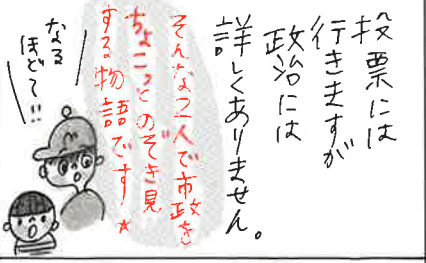 投票には
行きますが
政治には
詳しくありません。
そんな二人で市政を
ちょこっとのぞき見
する物語です★
なる
ほどて!!